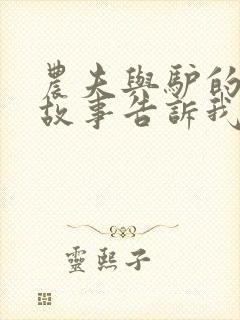 農夫與驴的
故事告訴我
靈熙子